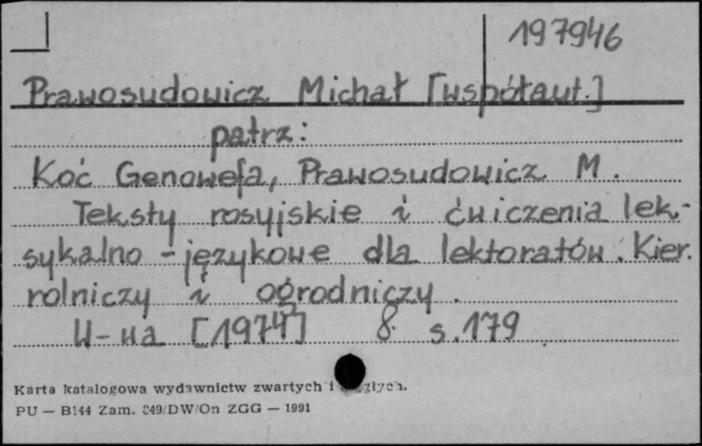 197946
Prawosudowicz Michał [współaut.]
patrz:
Koć Genowefa, Prawosudowicz M.
Teksty rosyjskie i ćwiczenia lek-
sykalno-językowe dla lektoratów. Kier.
rolniczy i ogrodniczy.
W-wa [1974] 8° s. 179
Karta katalogowa wydawnictw zwartych i
PU — B144 Zam. 849/DW/On ZGG — 1991